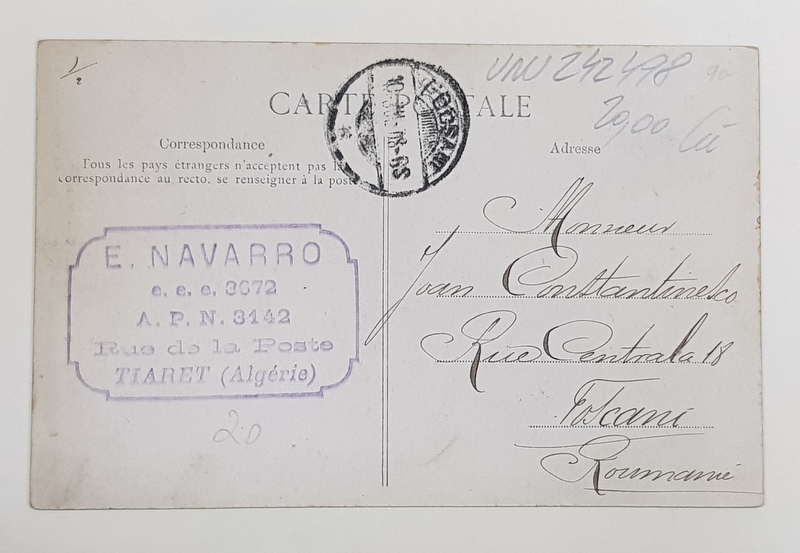 1/2
VNU 242498
CARTE POSTALE
20,00
Correspondance
Adresse
Tous les pays étrangers n'acceptent pas la
correspondance au recto, se renseigner à la poste
FOCSANI
Monsieur
Joan Constantinesco
Rue Centrala 18
Focsani
Roumanie
E. NAVARRO
e. e. e. 3672
A. P. N. 3142
Rue de la Poste
TIARET (Algérie)
20